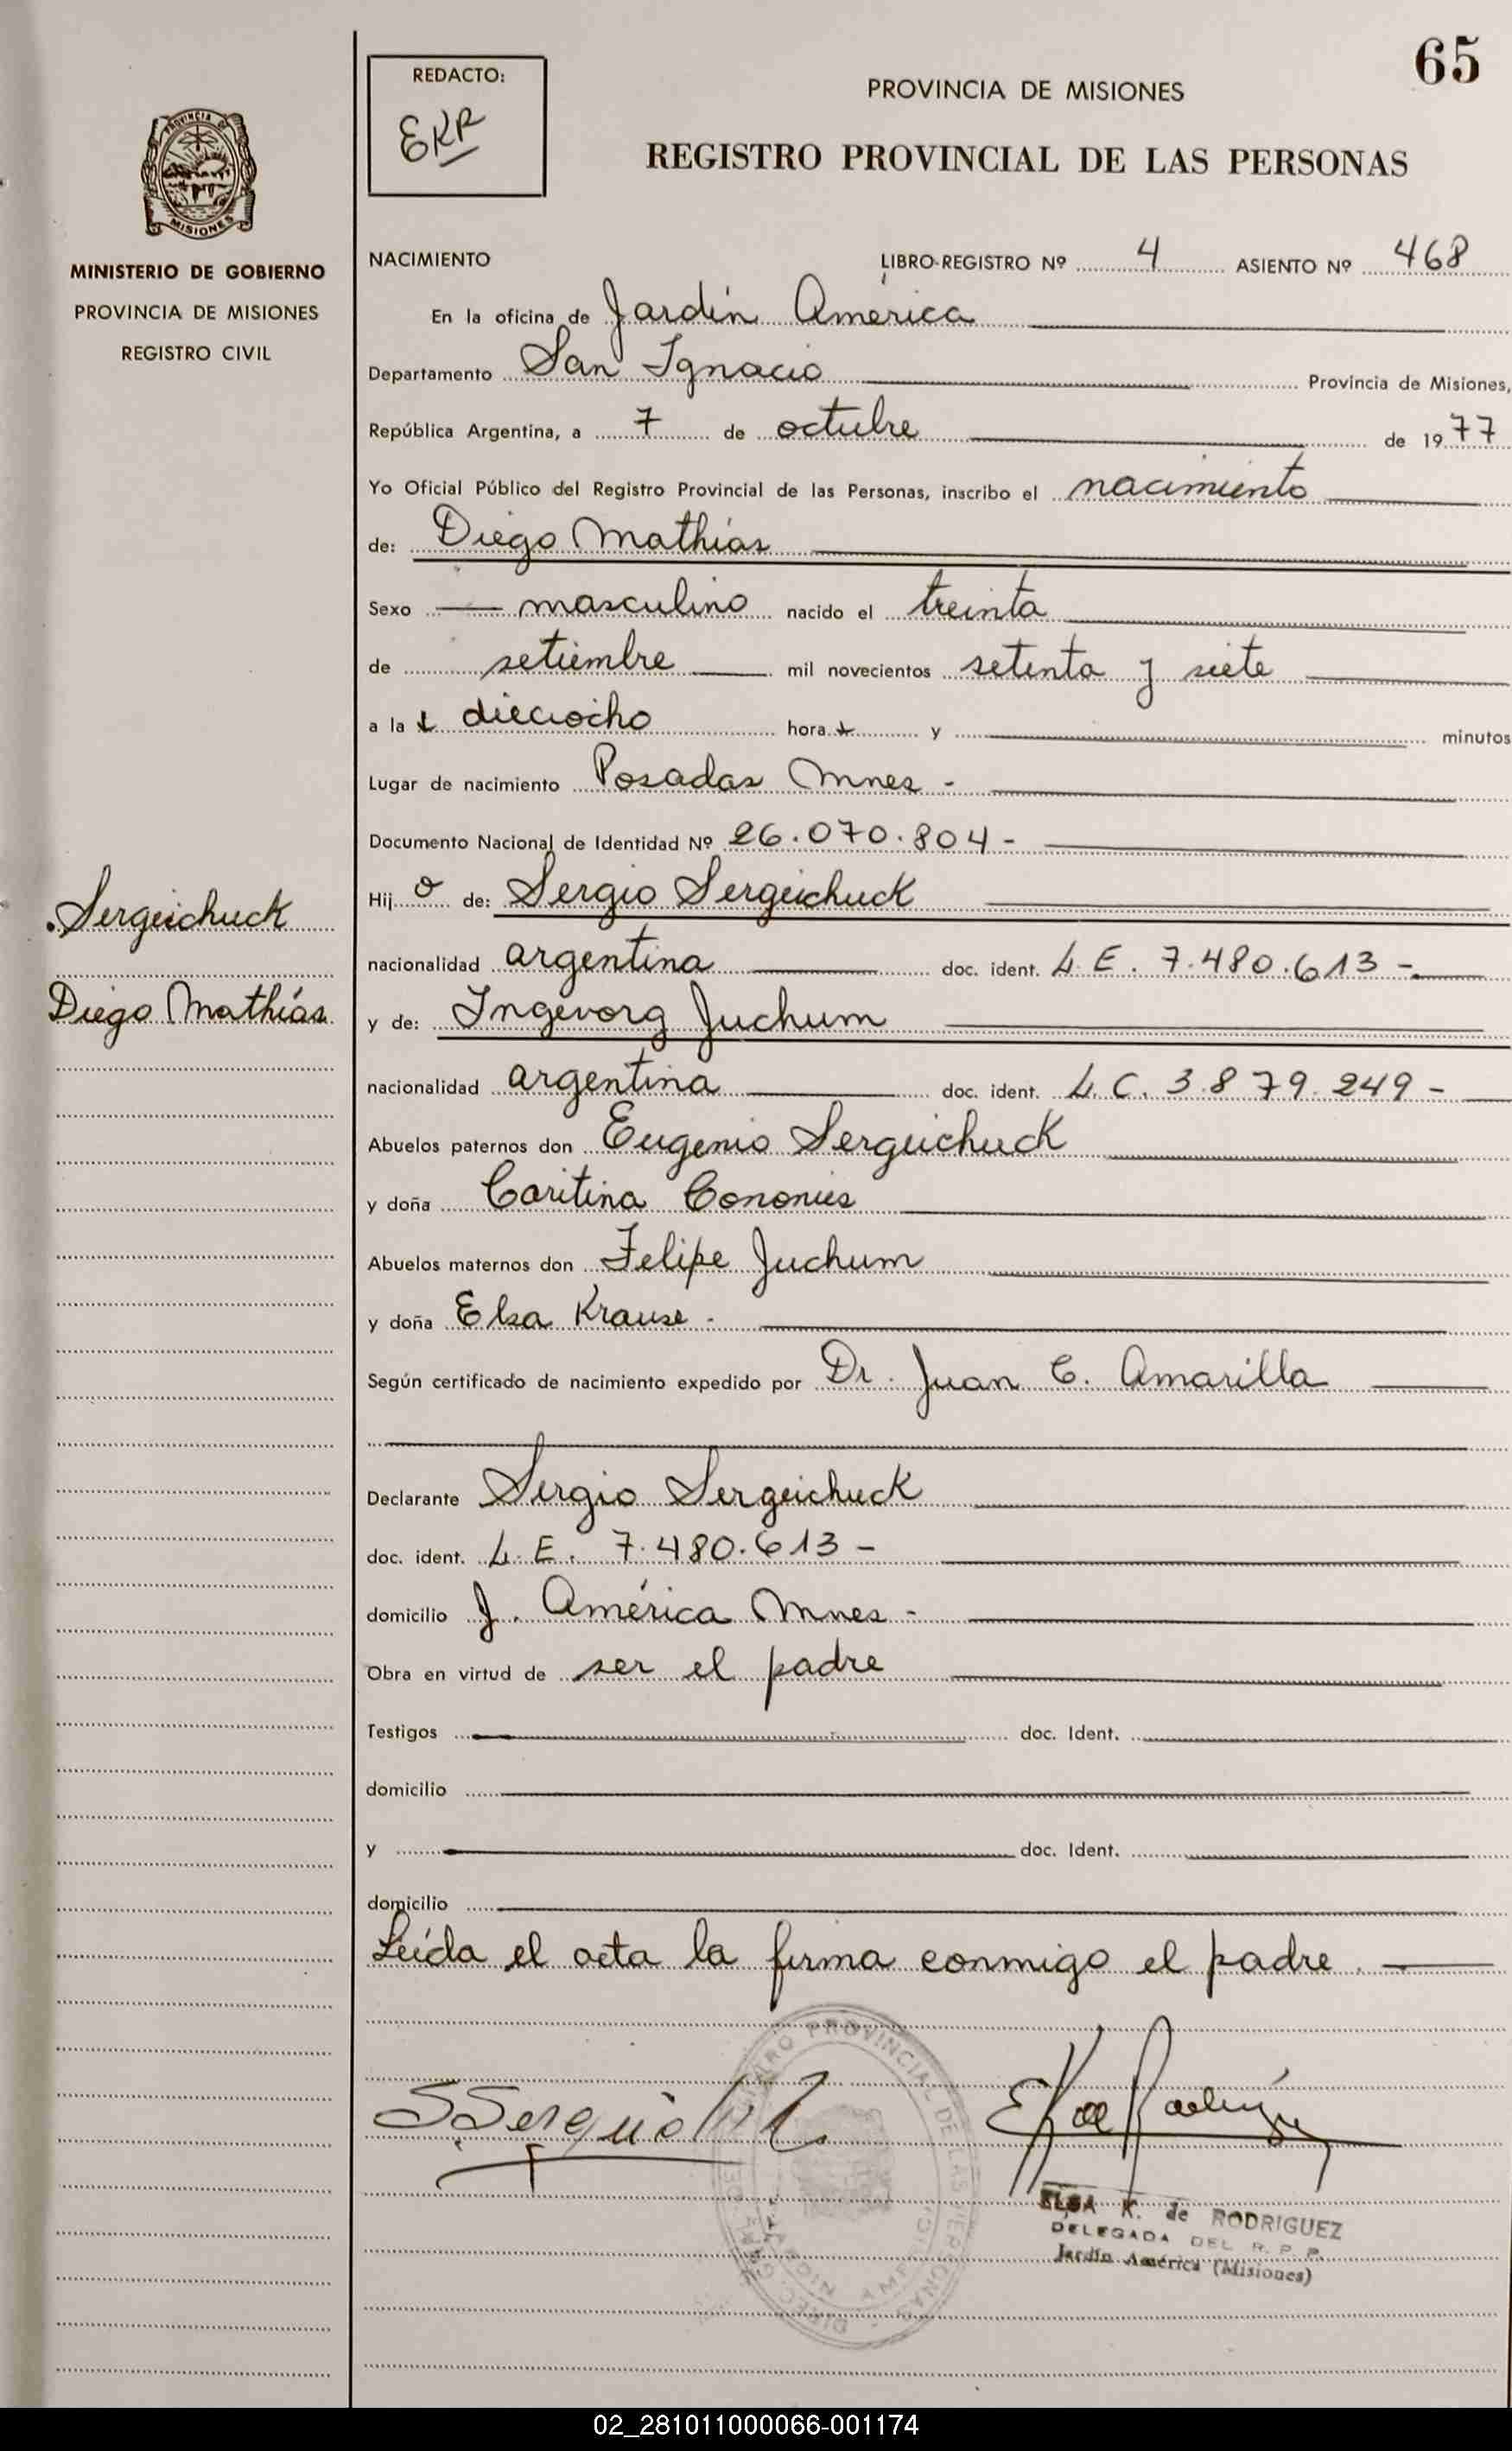 65
REDACTO:
EKR
PROVINCIA DE MISIONES
REGISTRO PROVINCIAL DE LAS PERSONAS
PROVINCIA DE
MISIONES
MINISTERIO DE GOBIERNO
PROVINCIA DE MISIONES
REGISTRO CIVIL
NACIMIENTO LIBRO-REGISTRO Nº 4 ASIENTO Nº 468
En la oficina de Jardín América
Departamento San Ignacio Provincia de Misiones,
República Argentina, a 7 de octubre de 1977
Yo Oficial Público del Registro Provincial de las Personas, inscribo el nacimiento
de: Diego Mathías
Sexo masculino nacido el treinta
de setiembre mil novecientos setenta y siete
a la s dieciocho hora s y minutos
Lugar de nacimiento Posadas Mnes -
Documento Nacional de Identidad Nº 26.070.804 -
Hij o de: Sergio Sergeichuck
nacionalidad argentina doc. ident. L.E. 7.480.613 -
y de: Ingevorg Juchum
nacionalidad argentina doc. ident. L.C. 3.879.249 -
Sergeichuck
Diego Mathías
Abuelos paternos don Eugenio Sergeichuck
y doña Caritina Cononies
Abuelos maternos don Felipe Juchum
y doña Elsa Krause -
Según certificado de nacimiento expedido por Dr. Juan C. Amarilla
Declarante Sergio Sergeichuck
doc. ident. L.E. 7.480.613 -
domicilio J. América Mnes -
Obra en virtud de ser el padre
Testigos doc. Ident.
domicilio
y doc. Ident.
domicilio
Leída el acta la firma conmigo el padre.
ELSA K. de RODRIGUEZ
DELEGADA DEL R. P. P.
Jardín América (Misiones)
02_281011000066-001174